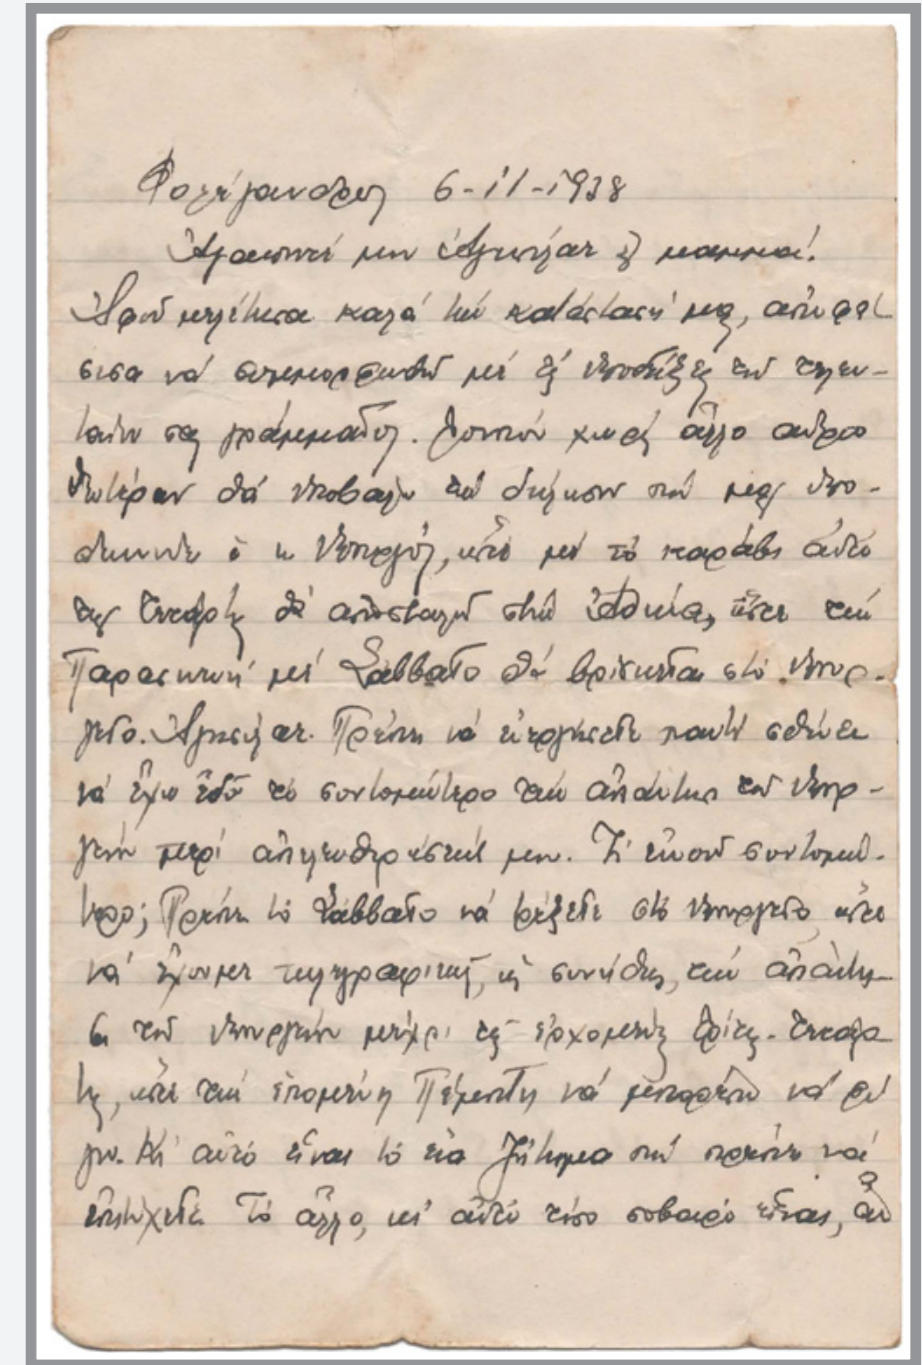 Φολέγανδρος 6-11-1938
Ἀγαπητέ μου ἀδελφέ καὶ μαμμά!
Ἀφοῦ μελέτησα καλά τήν κατάστασή μας, ἀποφά
σισα νά συμμορφωθῶ μέ τίς ὑποδείξεις τοῦ τελευ-
ταίου σας γράμματος. Λοιπόν χωρίς ἄλλο αὔριο
θά ὑποβάλω τήν δήλωσιν πού μας ὑπο-
ὁ κ. Ὑπουργός, ὥστε μέ τό καράβι αὐτό
της Τετάρτης θά ἀποσταλῇ στήν Ἀθήνα, ὥστε τήν
Παρασκευή μέ Σάββατο θά βρίσκεται στό Ὑπουρ-
γεῖο. Πρέπει νά ἐνεργήσετε παντί σθένει
νά ἔχω ἐδῶ τό συντομώτερο τήν ἀπάντηση τοῦ Ὑπουρ-
γείου περί ἀπελευθερώσεώς μου. Τί εἰποῦν συντομώ-
τερο; Πρέπει τό Σάββατο νά τρέξετε στό Ὑπουργεῖο ὥστε
νά ἔχουμε τηλεγραφικῶς, ὡς συνήθως, τήν ἀπάντη-
ση τοῦ Ὑπουργείου μέχρι τῆς ἐρχομένης Τρίτης-Τετάρ
της, ὥστε τήν ἑπομένη Πέμπτη νά μπορέσω νά φύ
γω. Κι' αὐτό εἶναι τό ἕνα ζήτημα πού πρέπει νά
ἐπιτύχετε. Τό ἄλλο, κι' αὐτό τόσο σοβαρό εἶναι, ἄν